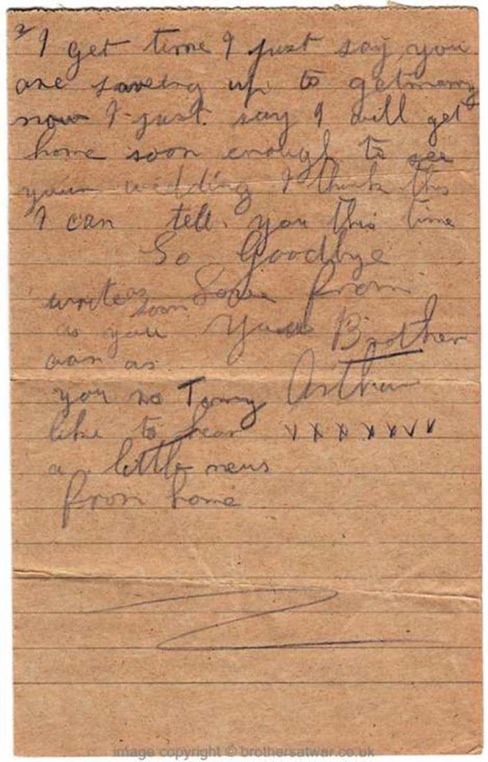 2
I get time I just say you
are saveing up to getmarry
now I just say I will get
home soon enough to see
your wedding I think this
I can tell you this time
So Goodbye
write as soon Love from
as you Your Brother
can as
you no Tommy Arthur
like to hear x x x x x x x
a little news
from home
image copyright © brothersatwar.co.uk